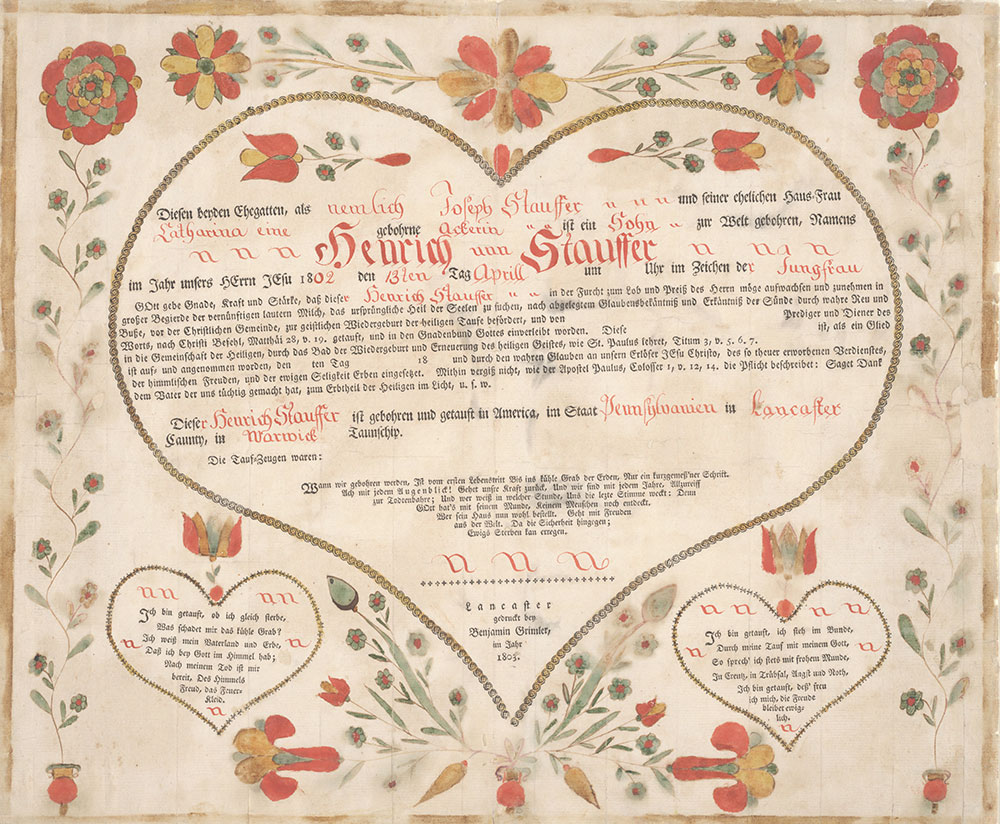 Diesen beyden Ehegatten, als nemlich Joseph Stauffer und seiner ehelichen Haus-Frau
Catharina eine gebohrne Ackerin ist ein Sohn zur Welt gebohren, Namens
Henrich Stauffer
im Jahr unsers HErrn JEsu 1802 den 13ten Tag Aprill um Uhr im Zeichen der Jungfrau
GOtt gebe Gnade, Kraft und Stärke, daß dieser Henrich Stauffer in der Furcht zum Lob und Preiß des Herrn möge aufwachsen und zunehmen in
großer Begierde der vernünftigen lautern Milch, das ursprüngliche Heil der Seelen zu suchen, nach abgelegtem Glaubensbekäntniß und Erkäntniß der Sünde durch wahre Reu und
Buße, vor der Christlichen Gemeinde, zur geistlichen Wiedergeburt der heiligen Taufe befördert, und von Prediger und Diener des
Worts, nach Christi Befehl, Matthäi 28, v. 19. getauft, und in den Gnadenbund Gottes einverleibt worden. Diese ist, als ein Glied
in die Gemeinschaft der Heiligen, durch das Bad der Wiedergeburt und Erneuerung des heiligen Geistes, wie St. Paulus lehret, Titum 3, v. 5. 6. 7.
ist auf- und angenommen worden, den ten Tag 18 und durch den wahren Glauben an unsern Erlöser JEsu Christo, des so theuer erworbenen Verdienstes,
der himmlischen Freuden, und der ewigen Seligkeit Erben eingesetzt. Mithin vergiß nicht, wie der Apostel Paulus, Colosser 1, v. 12, 14. die Pflicht beschreibet: Saget Dank
dem Vater der uns tüchtig gemacht hat, zum Erbtheil der Heiligen im Licht, u. s. w.
Dieser Henrich Stauffer ist gebohren und getauft in America, im Staat Pennsylvanien in Lancaster
Caunty, in Warwick Taunschip.
Die Tauf-Zeugen waren:
Wann wir gebohren werden, Ist vom ersten Lebenstritt Bis ins kühle Grab der Erden, Nur ein kurzgemeß'ner Schritt.
Ach mit jedem Augenblick! Gehet unsre Kraft zurück, Und wir sind mit jedem Jahre, Allzureiff
zur Todtenbahre; Und wer weiß in welcher Stunde, Uns die lezte Stimme weckt: Denn
GOtt hat's mit seinem Munde, Keinem Menschen noch entdeckt.
Wer sein Haus nun wohl bestellt, Geht mit Freuden
aus der Welt. Da die Sicherheit hingegen;
Ewigs Sterben kan erregen.
Lancaster
gedruckt bey
Benjamin Grimler,
im Jahr
1803.
Ich bin getauft, ob ich gleich sterbe,
Was schadet mir das kühle Grab?
Ich weiß mein Vaterland und Erbe,
Daß ich bey Gott im Himmel hab;
Nach meinem Tod ist mir
bereit, Des Himmels
Freud, das Feuer-
Kleid.
Ich bin getauft, ich steh im Bunde,
Durch meine Tauf mit meinem Gott,
So sprech' ich stets mit frohem Munde,
In Creutz, in Trübsal, Angst und Noth,
Ich bin getauft, deß' freu
ich mich, die Freude
bleibet ewig-
lich.